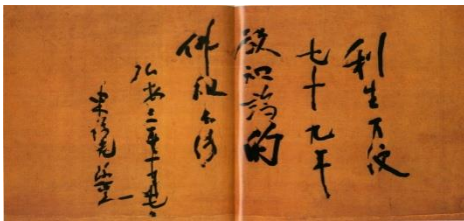 利生方便
七十九年
欲知端的
佛祖不傳
弘安三年十月十七日
東福老